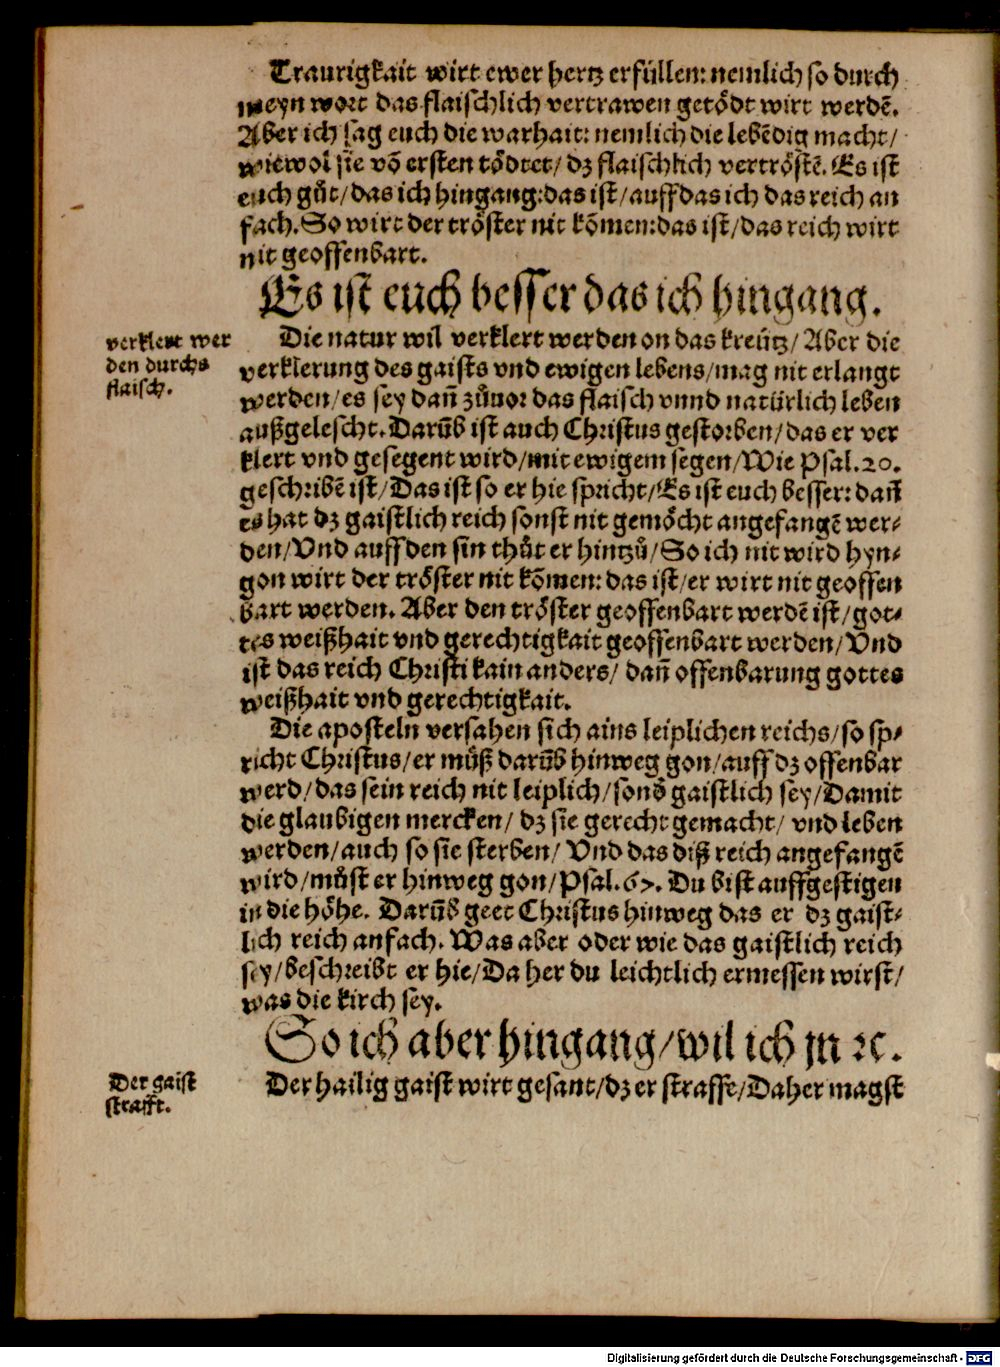 Traurigkait wirt ewer hertz erfüllen: nemlich so durch
meyn wort das flaischlich vertrawen getödt wirt werdē.
Aber ich sag euch die warhait: nemlich die lebēdig macht/
wiewol sie vō ersten tödtet/ dz flaischlich vertröstē. Es ist
euch gůt/ das ich hingang: das ist/ auff das ich das reich an
fach. So wirt der tröster nit kōmen: das ist/ das reich wirt
nit geoffenbart.
Es ist euch besser das ich hingang.
verklert wer
den durchs
flaisch.
Die natur wil verklert werden on das kreütz/ Aber die
verklerung des gaists vnd ewigen lebens/ mag nit erlangt
werden/ es sey dañ zůuor das flaisch vnnd natürlich leben
außgelescht. Darūb ist auch Christus gestorben/ das er ver
klert vnd gesegent wird/ mit ewigem segen/ Wie Psal. 20.
geschribē ist/ Das ist so er hie spricht/ Es ist euch besser: dañ
es hat dz gaistlich reich sonst nit gemöcht angefangē wer⸗
den/ Vnd auff den sin thůt er hintzů/ So ich nit wird hyn⸗
gon wirt der tröster nit kōmen: das ist/ er wirt nit geoffen
bart werden. Aber den tröster geoffenbart werdē ist/ got⸗
tes weißhait vnd gerechtigkait geoffenbart werden/ Vnd
ist das reich Christi kain anders/ dañ offenbarung gottes
weißhait vnd gerechtigkait.
Die aposteln versahen sich ains leiplichen reichs/ so sp⸗
richt Christus/ er můß darūb hinweg gon/ auff dz offenbar
werd/ das sein reich nit leiplich/ sond̄ gaistlich sey/ Damit
die glaubigen mercken/ dz sie gerecht gemacht/ vnd leben
werden/ auch so sie sterben/ Vnd das diß reich angefangē
wird/ můst er hinweg gon/ Psal. 67. Du bist auffgestigen
in die höhe. Darūb geet Christus hinweg das er dz gaist⸗
lich reich anfach. Was aber oder wie das gaistlich reich
sey/ beschreibt er hie/ Da her du leichtlich ermessen wirst/
was die kirch sey.
So ich aber hingang/ wil ich jn ꝛc.
Der gaist
strafft.
Der hailig gaist wirt gesant/ dz er straffe/ Daher magst
Digitalisierung gefördert durch die Deutsche Forschungsgemeinschaft - DFG